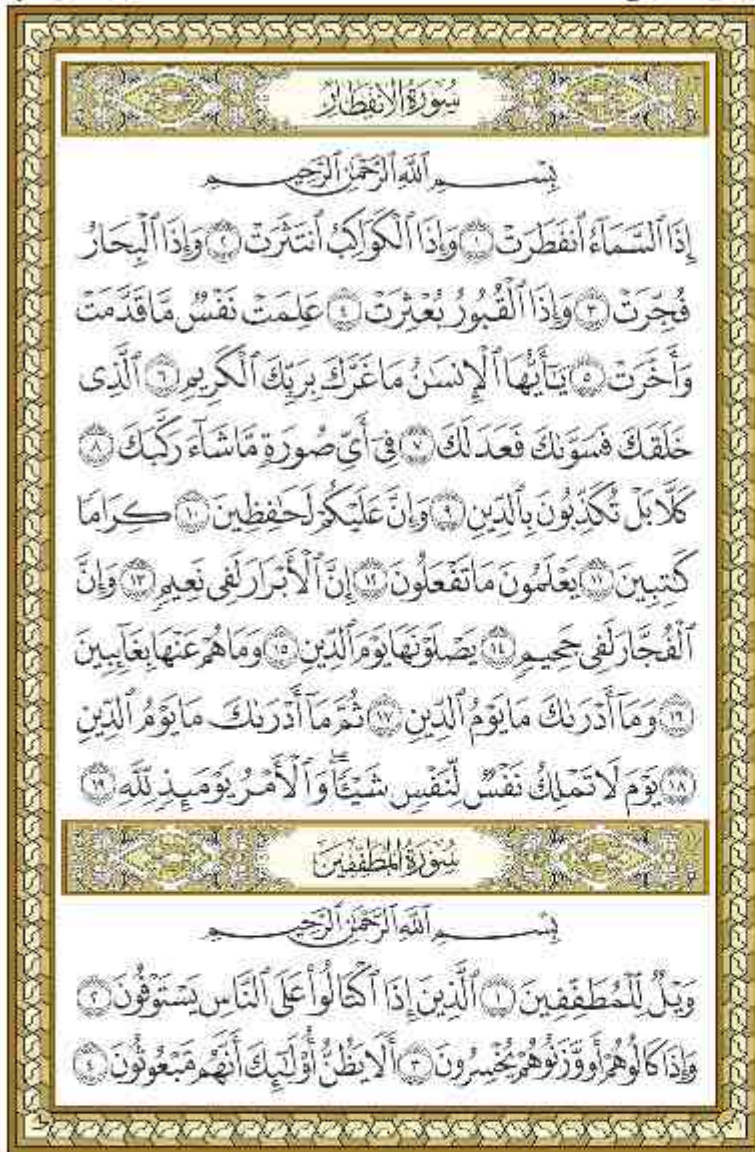 سُورَةُ الِانفِطَارِ
بِسْمِ ٱللَّهِ ٱلرَّحْمَٰنِ ٱلرَّحِيمِ
إِذَا ٱلسَّمَآءُ ٱنفَطَرَتْ ١ وَإِذَا ٱلْكَوَاكِبُ ٱنتَثَرَتْ ٢ وَإِذَا ٱلْبِحَارُ
فُجِّرَتْ ٣ وَإِذَا ٱلْقُبُورُ بُعْثِرَتْ ٤ عَلِمَتْ نَفْسٌ مَّا قَدَّمَتْ
وَأَخَّرَتْ ٥ يَٰٓأَيُّهَا ٱلْإِنسَٰنُ مَا غَرَّكَ بِرَبِّكَ ٱلْكَرِيمِ ٦ ٱلَّذِى
خَلَقَكَ فَسَوَّىٰكَ فَعَدَلَكَ ٧ فِىٓ أَىِّ صُورَةٍ مَّا شَآءَ رَكَّبَكَ ٨
كَلَّا بَلْ تُكَذِّبُونَ بِٱلدِّينِ ٩ وَإِنَّ عَلَيْكُمْ لَحَٰفِظِينَ ١٠ كِرَامًا
كَٰتِبِينَ ١١ يَعْلَمُونَ مَا تَفْعَلُونَ ١٢ إِنَّ ٱلْأَبْرَارَ لَفِى نَعِيمٍ ١٣ وَإِنَّ
ٱلْفُجَّارَ لَفِى جَحِيمٍ ١٤ يَصْلَوْنَهَا يَوْمَ ٱلدِّينِ ١٥ وَمَا هُمْ عَنْهَا بِغَآئِبِينَ
١٦ وَمَآ أَدْرَىٰكَ مَا يَوْمُ ٱلدِّينِ ١٧ ثُمَّ مَآ أَدْرَىٰكَ مَا يَوْمُ ٱلدِّينِ
١٨ يَوْمَ لَا تَمْلِكُ نَفْسٌ لِّنَفْسٍ شَيْـًٔا ۖ وَٱلْأَمْرُ يَوْمَئِذٍ لِّلَّهِ ١٩
سُورَةُ المُطَفِّفِينَ
بِسْمِ ٱللَّهِ ٱلرَّحْمَٰنِ ٱلرَّحِيمِ
وَيْلٌ لِّلْمُطَفِّفِينَ ١ ٱلَّذِينَ إِذَا ٱكْتَالُوا۟ عَلَى ٱلنَّاسِ يَسْتَوْفُونَ ٢
وَإِذَا كَالُوهُمْ أَو وَّزَنُوهُمْ يُخْسِرُونَ ٣ أَلَا يَظُنُّ أُو۟لَٰٓئِكَ أَنَّهُم مَّبْعُوثُونَ ٤